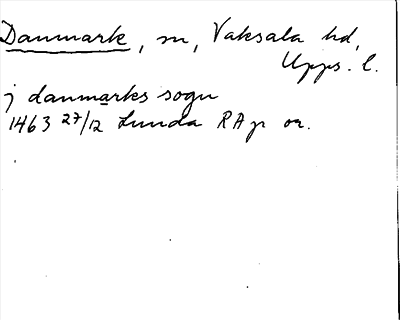 Danmark, sn, Vaksala hd,
Upps. l.
j danmarks sogn
1463 27/12 Lunda RAp or.